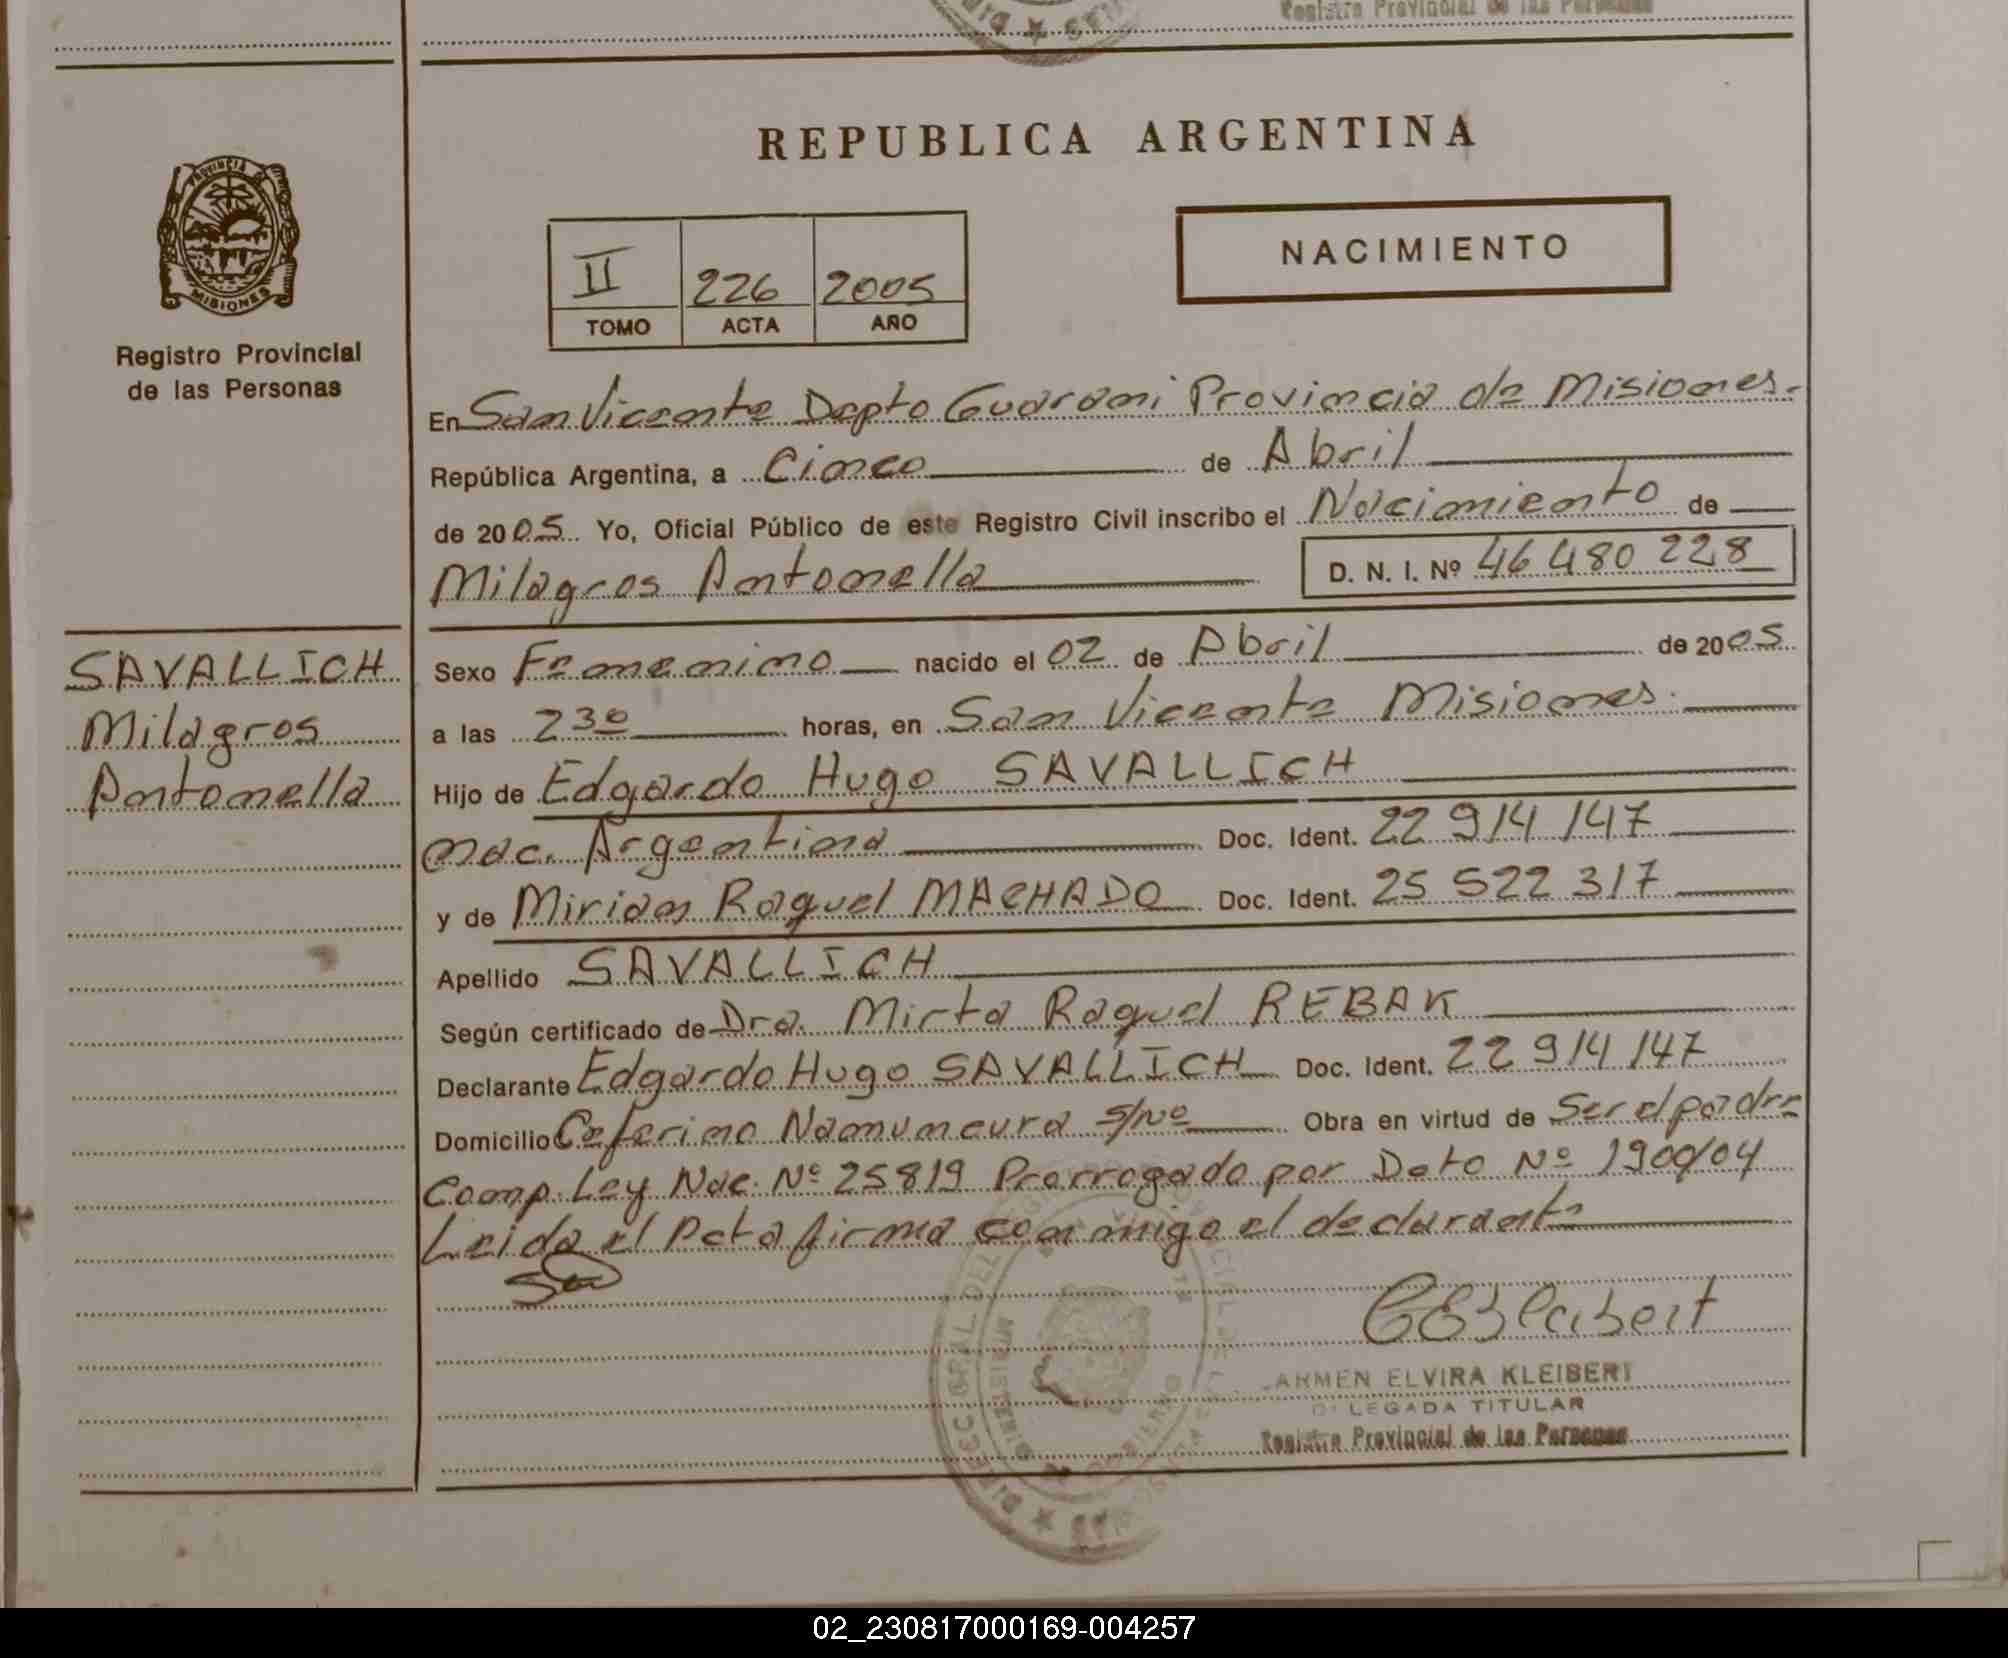 Registro Provincial de las Personas
REPUBLICA ARGENTINA
PROVINCIA DE
MISIONES
Registro Provincial
de las Personas
II 226 2005
TOMO ACTA AÑO
NACIMIENTO
En San Vicente Depto Guarani Provincia de Misiones.
República Argentina, a Cinco de Abril
de 2005 Yo, Oficial Público de este Registro Civil inscribo el Nacimiento de
Milagros Antonella D. N. I. Nº 46 480 228
SAVALLICH
Milagros
Antonella
Sexo Femenino nacido el 02 de Abril de 2005
a las 23º horas, en San Vicente Misiones.
Hijo de Edgardo Hugo SAVALLICH
nac. Argentina Doc. Ident. 22 914 147
y de Miriam Raquel MACHADO Doc. Ident. 25 522 317
Apellido SAVALLICH
Según certificado de Dra. Mirta Raquel REBAK
Declarante Edgardo Hugo SAVALLICH Doc. Ident. 22 914 147
Domicilio Ceferino Namuncura s/Nº Obra en virtud de Ser el padre
Comp. Ley Nac. Nº 25819 Prorrogado por Dcto Nº 1900/04
Leida el Acta firma conmigo el declarante
ARMEN ELVIRA KLEIBERT
DELEGADA TITULAR
Registro Provincial de las Personas
02_230817000169-004257